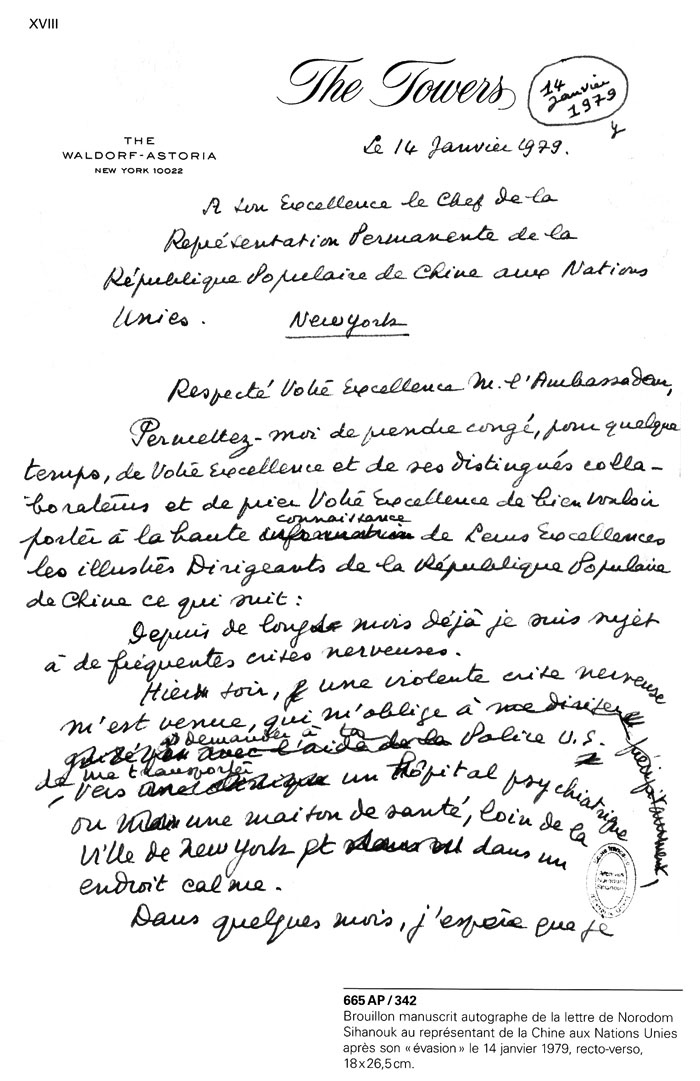 XVIII
The Towers
14
Janvier
1979
THE
WALDORF-ASTORIA
NEW YORK 10022
Le 14 Janvier 1979.
A Son Excellence le Chef de la
Représentation Permanente de la
République Populaire de Chine aux Nations
Unies. New York
Respecté Votre Excellence M. l'Ambassadeur,
Permettez-moi de prendre congé, pour quelque
temps, de Votre Excellence et de ses distingués colla-
borateurs et de prier Votre Excellence de bien vouloir
connaissance
porter à la haute information de Leurs Excellences
les illustres Dirigeants de la République Populaire
de Chine ce qui suit :
Depuis de longs mois déjà je suis sujet
à de fréquentes crises nerveuses.
Hier soir, une violente crise nerveuse
m'est venue, qui m'oblige à me
demander à la
avec l'aide de la Police U.S.
de me transporter
vers un hôpital psychiatrique
ou une maison de santé, loin de la
ville de New York et dans un
endroit calme.
Dans quelques mois, j'espère que je
665 AP / 342
Brouillon manuscrit autographe de la lettre de Norodom
Sihanouk au représentant de la Chine aux Nations Unies
après son « évasion » le 14 janvier 1979, recto-verso,
18 x 26,5 cm.